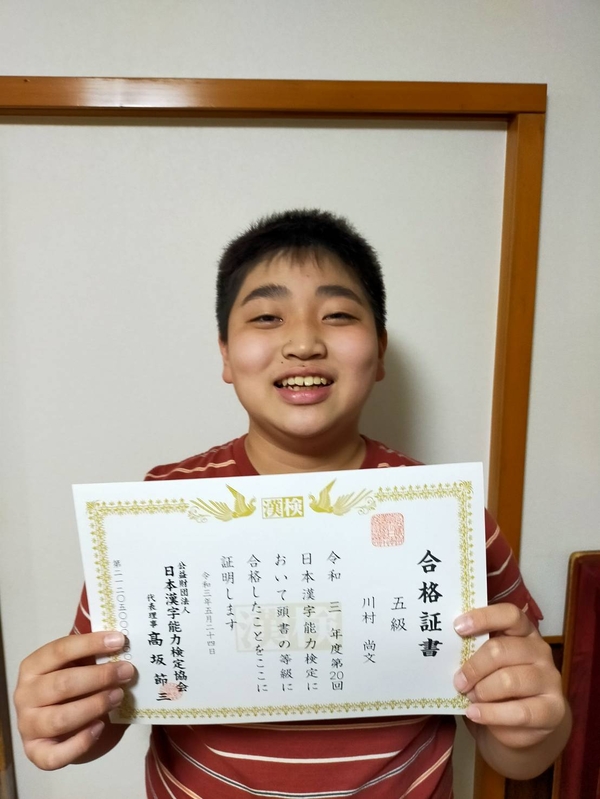 漢検
合格証書
五級
川村 尚文
令和 三 年度第20回
日本漢字能力検定に
おいて頭書の等級に
合格したことをここに
証明します
令和三年五月二十四日
公益財団法人
日本漢字能力検定協会
代表理事 髙坂 節三